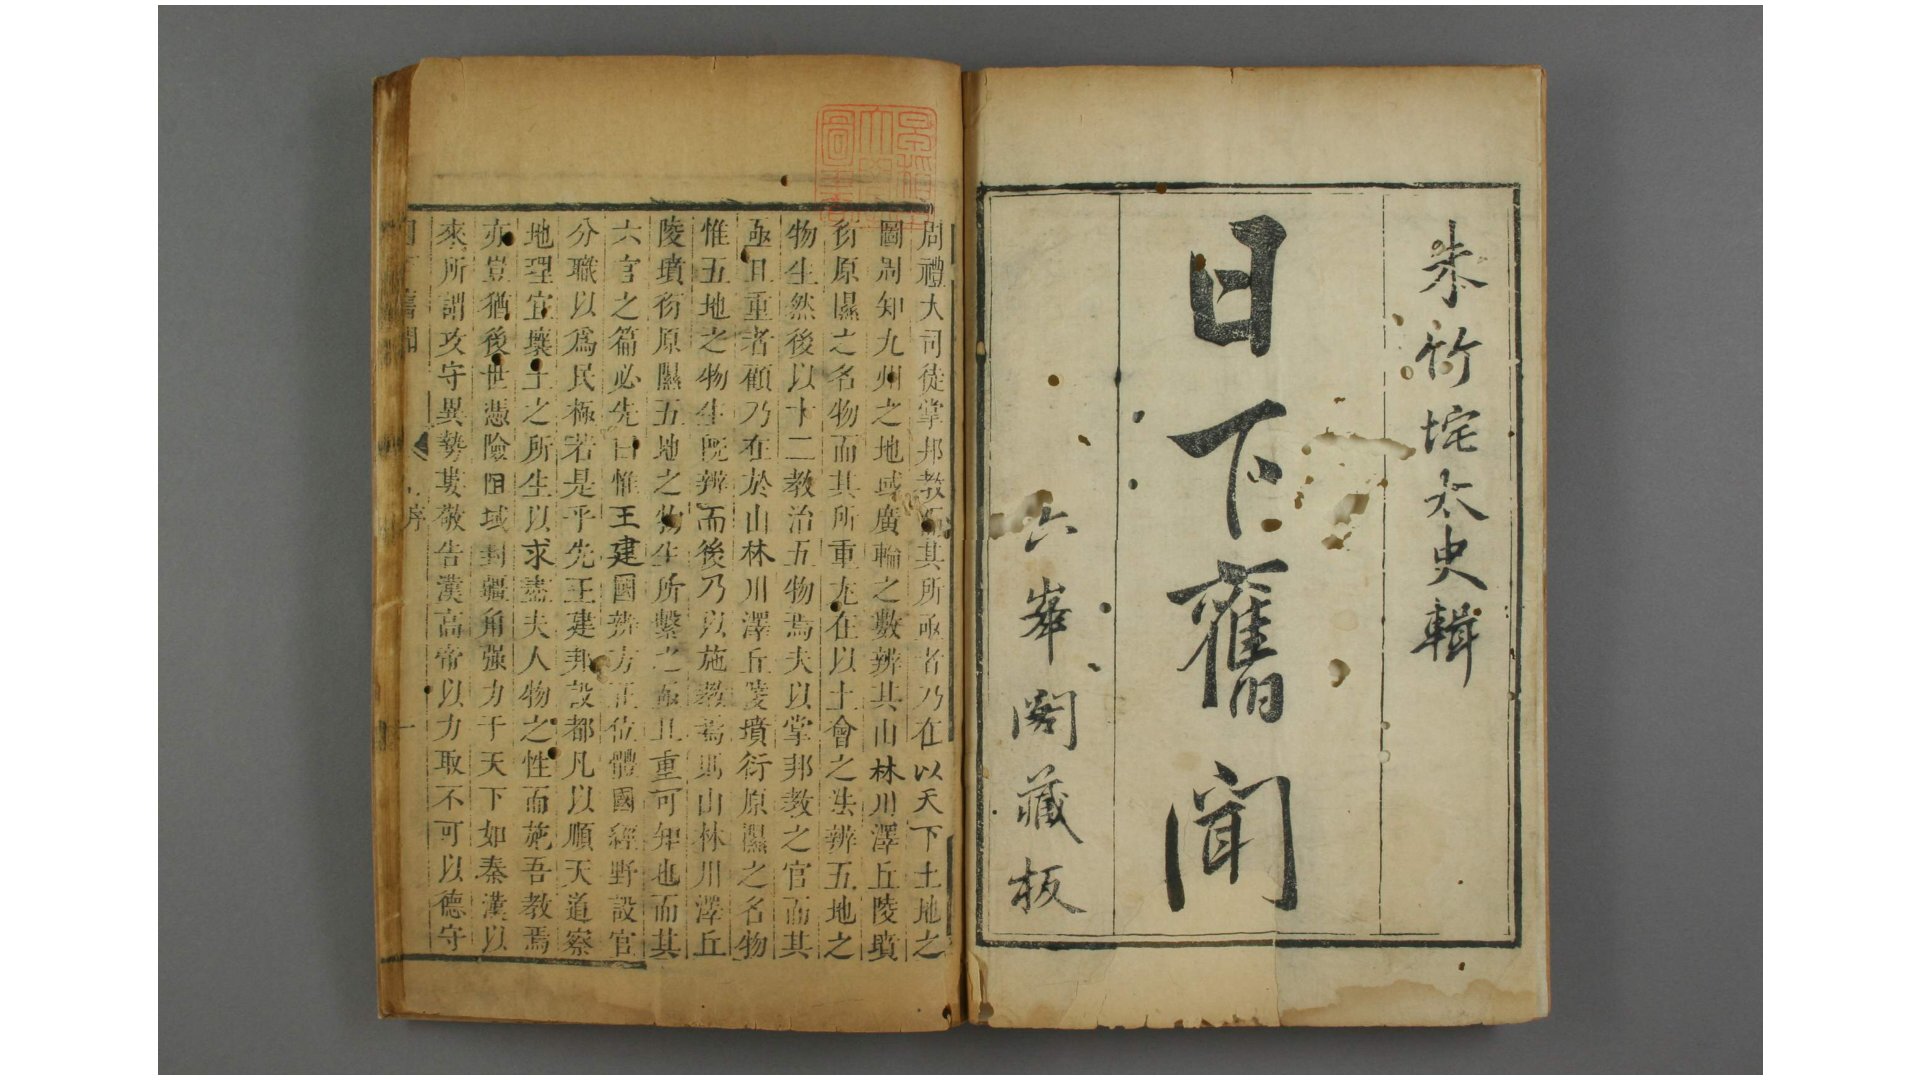 朱竹垞太史輯
日下舊聞
六峯閣藏板
周禮大司徒掌邦教其所亟者乃在以天下土地之
圖周知九州之地域廣輪之數辨其山林川澤丘陵墳
衍原隰之名物而其所重尤在以土會之法辨五地之
物生然後以十二教治五物焉夫以掌邦教之官而其
亟且重者顧乃在於山林川澤丘陵墳衍原隰之名物
惟五地之物生既辨而後乃以施教焉則山林川澤丘
陵墳衍原隰五地之物生所繫之亟且重可知也而其
六官之篇必先曰惟王建國辨方正位體國經野設官
分職以爲民極若是乎先王建邦設都凡以順天道察
地理宜壤土之所生以求盡夫人物之性而施吾教焉
亦豈猶後世憑險阻域封疆角强力于天下如秦漢以
來所謂攻守異勢婁敬告漢高帝以力取不可以德守
舊聞
序
一